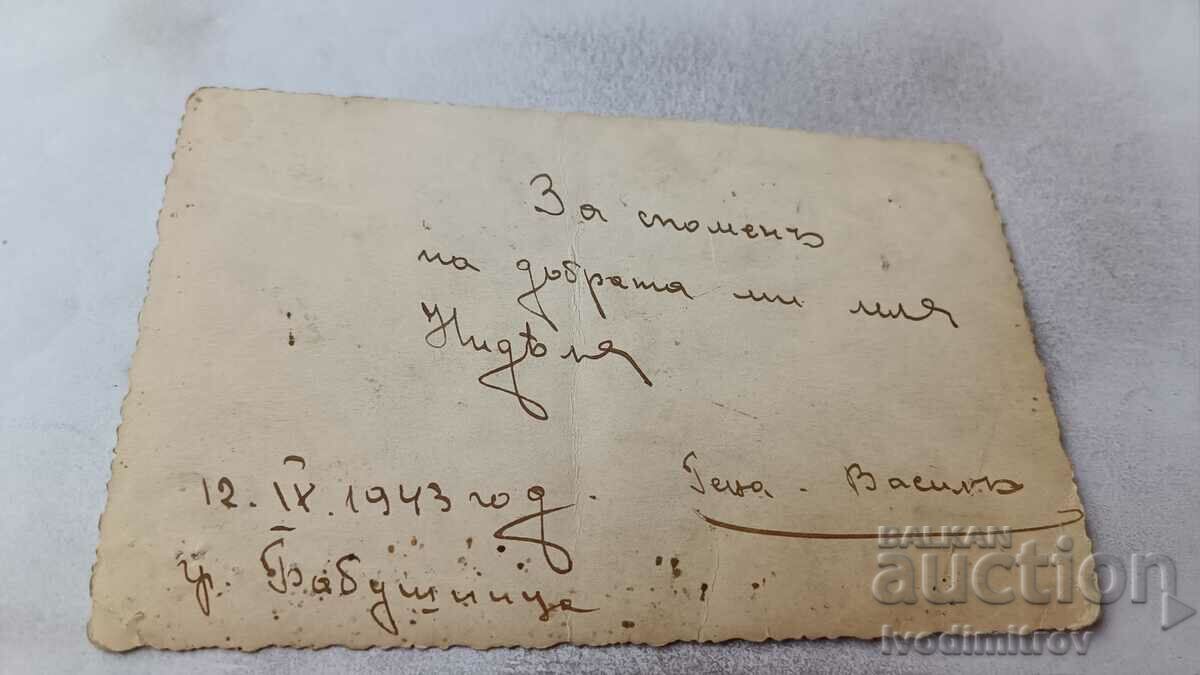 За споменъ
на добрата ми миля
Нидѣля
12. IX. 1943 год.
гр. Бабушница
Гена - Василъ
BALKAN
auction
Ivodimitrov